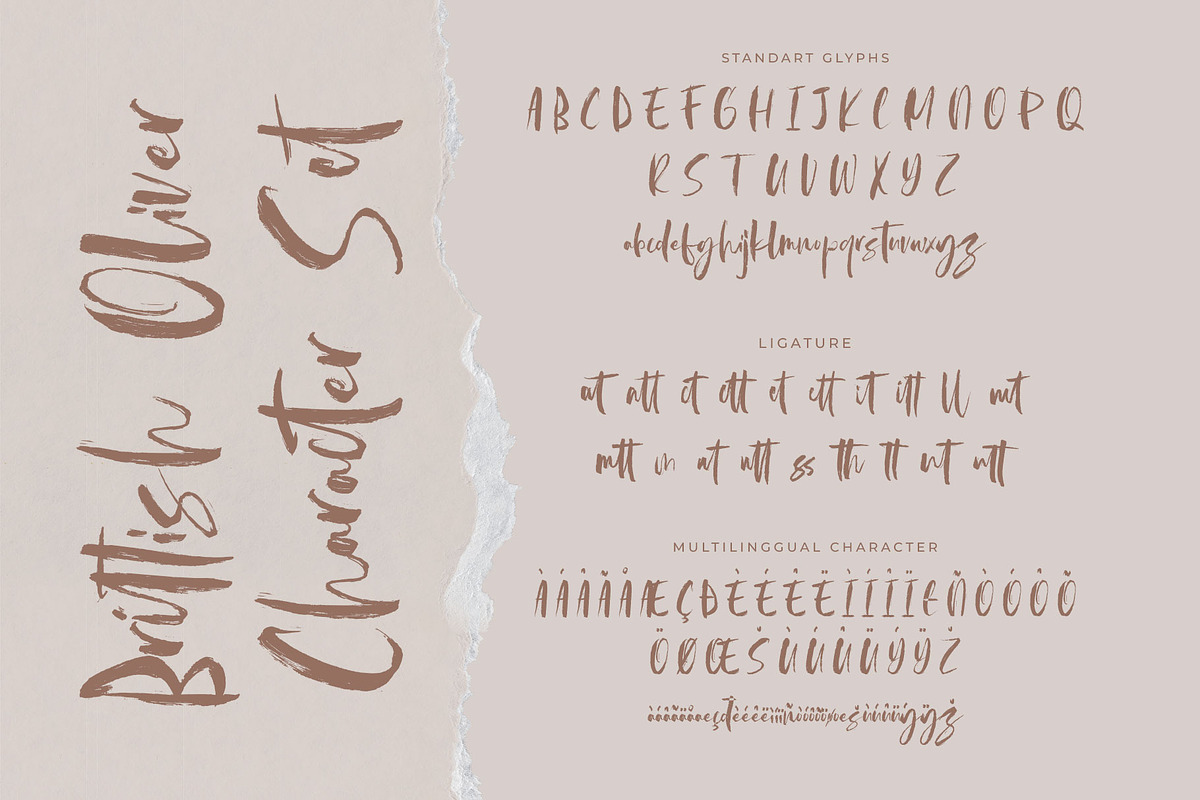 Brittish Oliver
Character Set
STANDART GLYPHS
A B C D E F G H I J K L M N O P Q
R S T U V W X Y Z
abcdefghijklmnopqrstuvwxyz
LIGATURE
at att ct ctt et ett it itt ll mt
mtt rn ut utt ss th tt nt ntt
MULTILINGGUAL CHARACTER